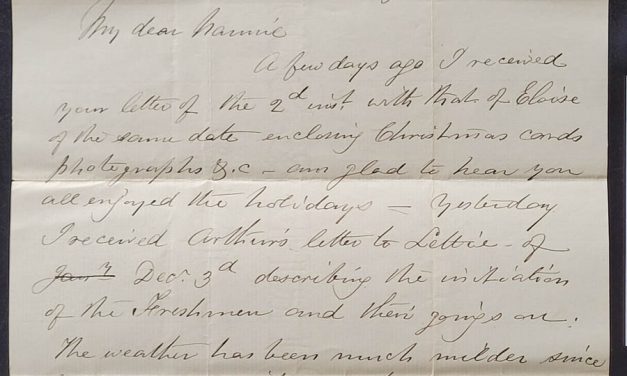 My dear Nannie
A few days ago I received
your letter of the 2d inst. with that of Eloise
of the same date enclosing Christmas cards
photographs &.c – am glad to hear you
all enjoyed the holidays – Yesterday
I received Arthur's letter to Lettie – of
Jany Decr. 3d describing the initiation
of the Freshmen and their goings on.
The weather has been much milder since